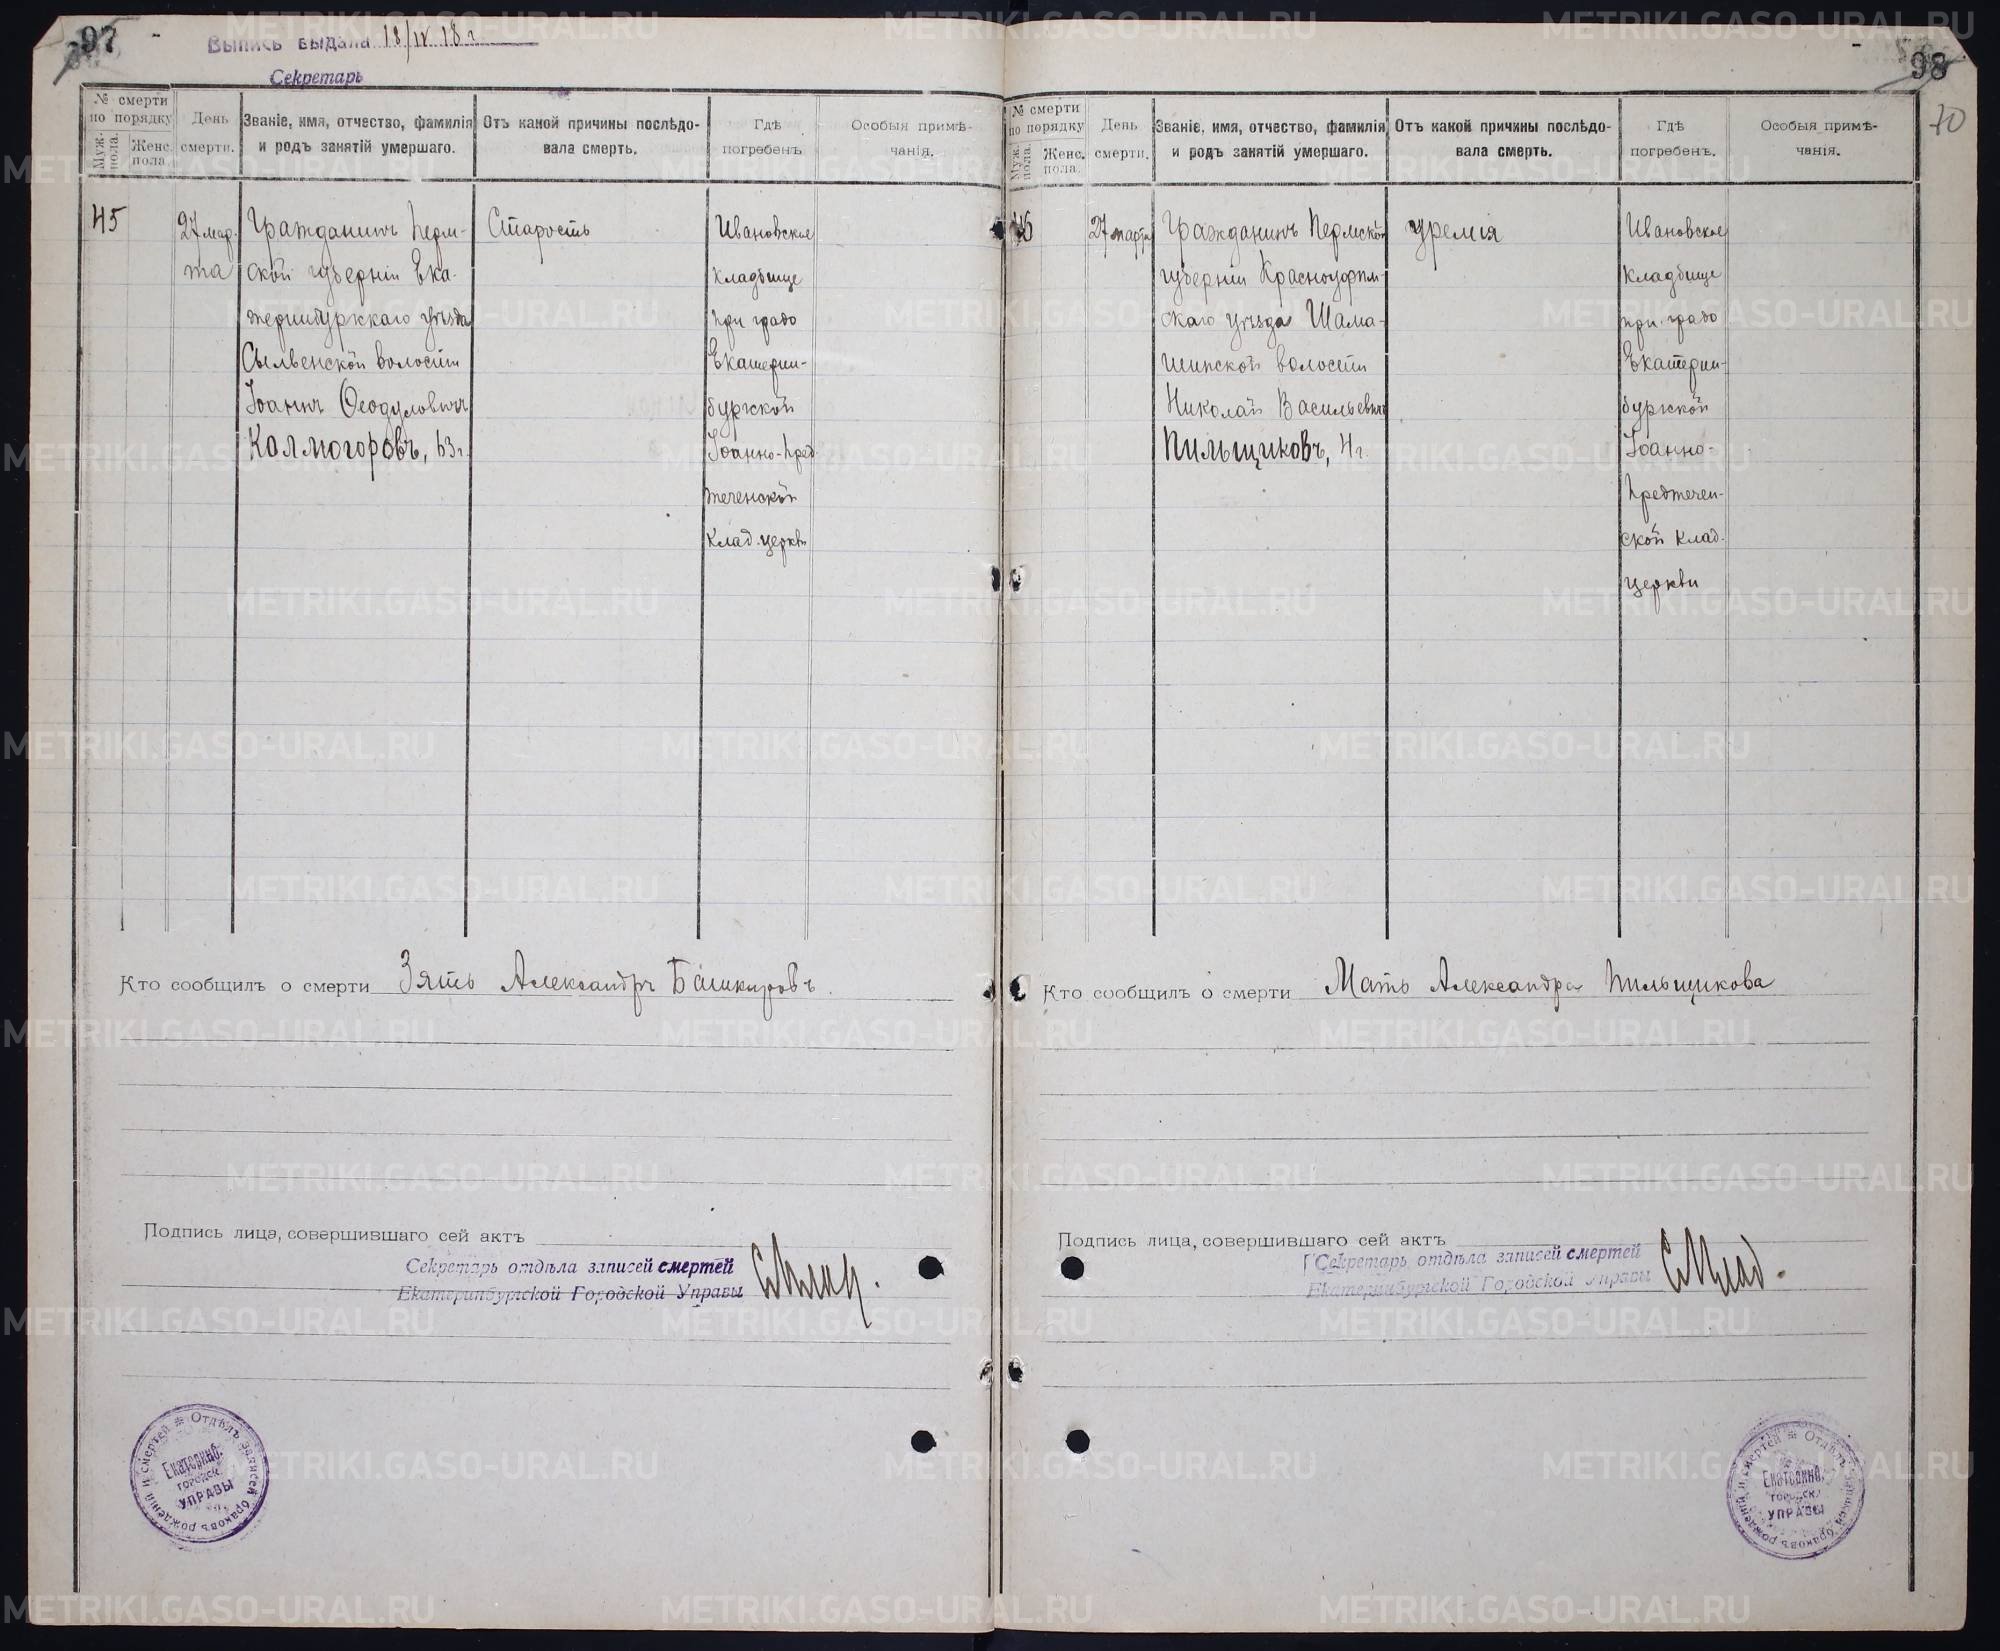 97
Выпись выдана 18/IV 18 г.
Секретарь
№ смерти по порядку
Муж. пола.
Женс. пола.
День смерти.
Званіе, имя, отчество, фамилія и родъ занятій умершаго.
Отъ какой причины послѣдовала смерть.
Гдѣ погребенъ
Особыя примѣчанія.
45
27 мар-
та
Гражданинъ Перм-
ской губерніи Ека-
теринбургскаго уѣзда
Сылвенской волости
Іоаннъ Ѳеодуловичъ
Калмогоровъ, 63 г.
Старость
Ивановское
кладбище
при градо
Екатерин-
бургской
Іоанно-Пред
теченской
клад. церкви
Кто сообщилъ о смерти Зять Александръ Башкировъ.
Подпись лица, совершившаго сей актъ
Секретарь отдѣла записей смертей
Екатеринбургской Городской Управы
Отдѣлъ записей браковъ рожденій и смертей
Екатеринб.
городск.
УПРАВЫ
98
70
№ смерти по порядку
Муж. пола.
Женс. пола.
День смерти.
Званіе, имя, отчество, фамилія и родъ занятій умершаго.
Отъ какой причины послѣдовала смерть.
Гдѣ погребенъ.
Особыя примѣчанія.
46
27 марта
Гражданинъ Пермской
губерніи Красноуфим-
скаго уѣзда Шама-
шинской волости
Николай Васильевичъ
Пильщиковъ, 4 г.
уремія
Ивановское
кладбище
при градо
Екатерин-
бургской
Іоанно-
Предтечен-
ской клад.
церкви
Кто сообщилъ о смерти Мать Александра Пильщикова
Подпись лица, совершившаго сей актъ
Секретарь отдѣла записей смертей
Екатеринбургской Городской Управы
Отдѣлъ записей браковъ рожденій и смертей
Екатеринб.
городск.
УПРАВЫ
METRIKI.GASO-URAL.RU